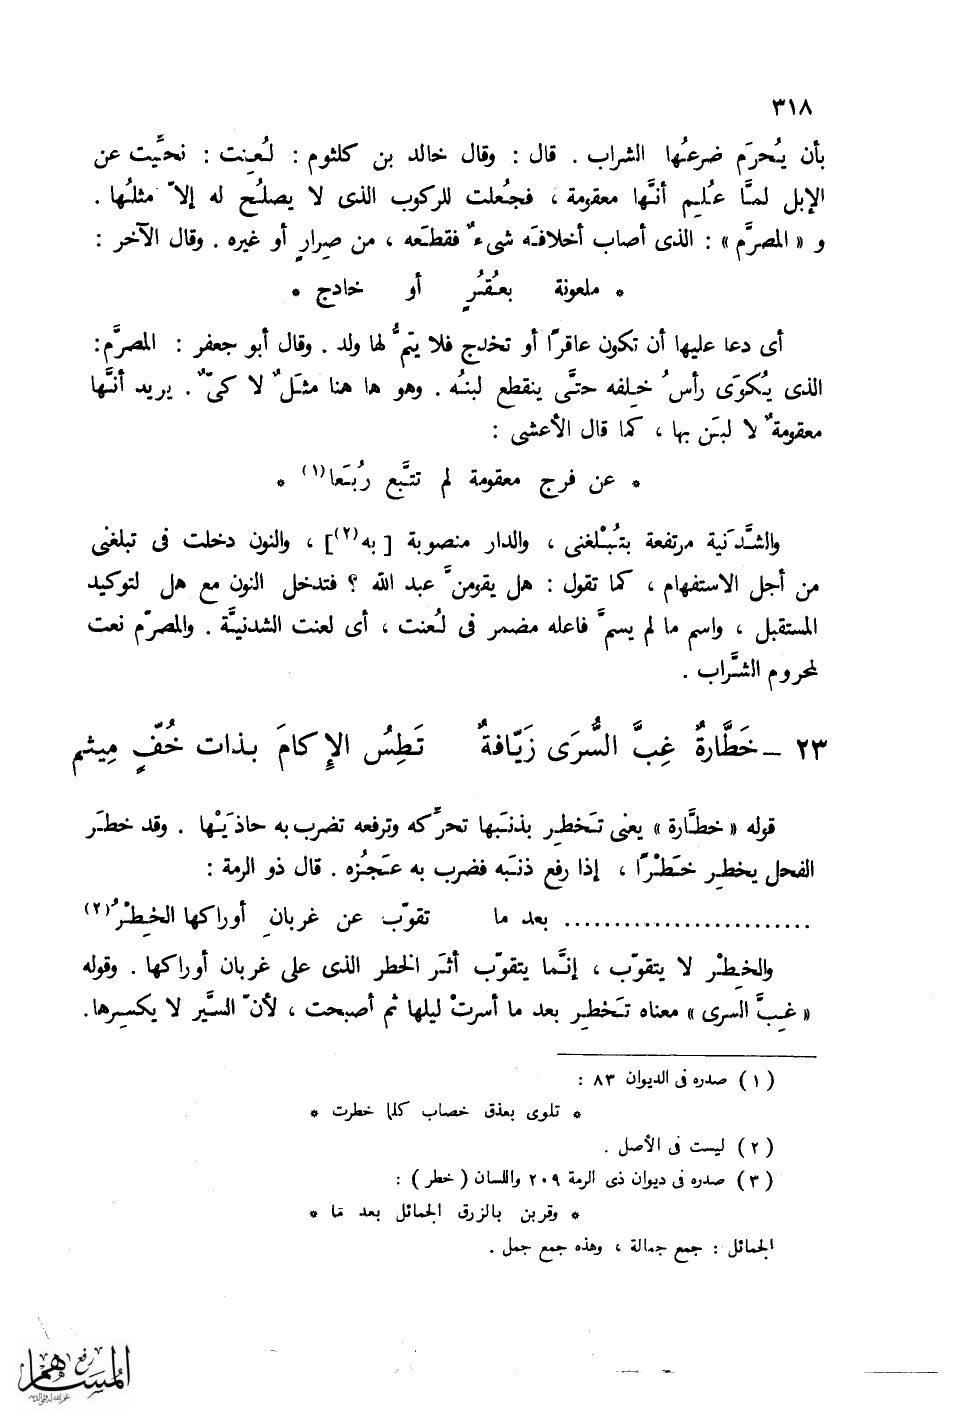 ٣١٨
بأن يُحرَم ضرعُها الشراب . قال : وقال خالد بن كلثوم : لُعِنت : نحيِّت عن
الإبل لمَّا عُلِم أنَّها معقومة ، فجُعلت للركوب الذى لا يصلُح له إلاّ مثلُها .
و « المصرَّم » : الذى أصاب أخلافَه شىءٌ فقطَعه ، من صِرارٍ أو غيره . وقال الآخر :
* ملعونة بعُقُرٍ أو خادج *
أى دعا عليها أن تكون عاقرًا أو تخدج فلا يتمُّ لها ولد . وقال أبو جعفر : المصرَّم :
الذى يُكوَى رأسُ خِلفه حتَّى ينقطع لبنُه . وهو ها هنا مثَلٌ لا كىٌّ . يريد أنَّها
معقومةٌ لا لبَن بها ، كما قال الأعشى :
* عن فرج معقومة لم تتَّبع رُبَعا(١) *
والشَّدَنية مرتفعة بتُبْلغنى ، والدار منصوبة [ به(٢)] ، والنون دخلت فى تبلغنى
من أجل الاستفهام ، كما تقول : هل يقومنَّ عبد الله ؟ فتدخل النون مع هل لتوكيد
المستقبل ، واسم ما لم يسمَّ فاعله مضمر فى لُعنت ، أى لعنت الشدنيَّة . والمصرّم نعت
لمحروم الشَّراب .
٢٣ – خَطَّارةٌ غِبَّ السُّرَى زَيّافةٌ تَطِسُ الإِكامَ بذات خُفٍّ مِيثم
قوله « خطَّارة » يعنى تَخطِر بذنَبها تحرِّكه وترفعه تضرب به حاذَيْها . وقد خطَر
الفحل يخطِر خَطْرًا ، إذا رفع ذنَبه فضرب به عَجُزه . قال ذو الرمة :
........................ بعد ما تقوّب عن غربانِ أوراكها الخطْرُ(٢)
والخِطْر لا يتقوّب ، إنَّما يتقوّب أثَر الخطر الذى على غربان أوراكها . وقوله
« غِبَّ السرى » معناه تَخطِر بعد ما أسرتْ ليلها ثم أصبحت ، لأنّ السَّير لا يكسِرها.
( ١ ) صدره فى الديوان ٨٣ :
* تلوى بعذق خصاب كلما خطرت *
( ٢ ) ليست فى الأصل .
( ٣ ) صدره فى ديوان ذى الرمة ٢٠٩ واللسان ( خطر ) :
* وقربن بالزرق الجمائل بعد ما *
الجمائل : جمع جمالة ، وهذه جمع جمل .